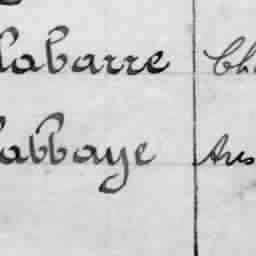 labarre Cha
labbaye Ars